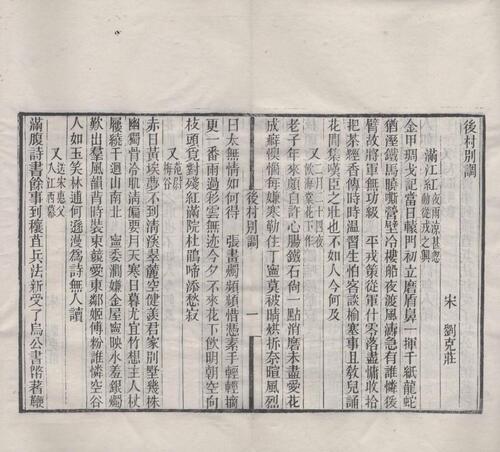 後村別調
宋 劉克莊
滿江紅 夜雨涼甚忽動從戎之興
金甲琱戈記當日轅門初立磨盾鼻一揮千紙龍蛇
猶溼鐵馬曉嘶營壁冷樓船夜渡風濤急有誰憐猨
臂故將軍無功級 平戎策從軍什零落盡慵收拾
把茶經香傳時時溫習生怕客談榆塞事且敎兒誦
花間集歎臣之壯也不如人今何及
又 二月二十四夜飲海棠花下作
老子年來頗自許心腸鐵石尙一點消磨未盡愛花
成癖懊惱每嫌寒勒住丁寧莫被晴烘拆奈暄風烈
後村別調 一
日太無情如何得 張畫燭頻頻惜憑素手輕輕摘
更一番雨過彩雲無迹今夕不來花下飮明朝空向
枝頭覓對殘紅滿院杜鵑啼添愁寂
又 范尉梅谷
赤日黃埃夢不到淸溪翠麓空健羨君家別墅幾株
幽獨骨冷肌淸偏要月天寒日暮尤宜竹想主人杖
屨繞千迴山南北 寧委澗嫌金屋寧映水羞銀燭
歎出羣風韻背時裝束競愛東鄰姬傅粉誰憐空谷
人如玉笑林逋何遜漫爲詩無人讀
又 送宋惠父入江西幕
滿腹詩書餘事到穰苴兵法新受了烏公書幣著鞭